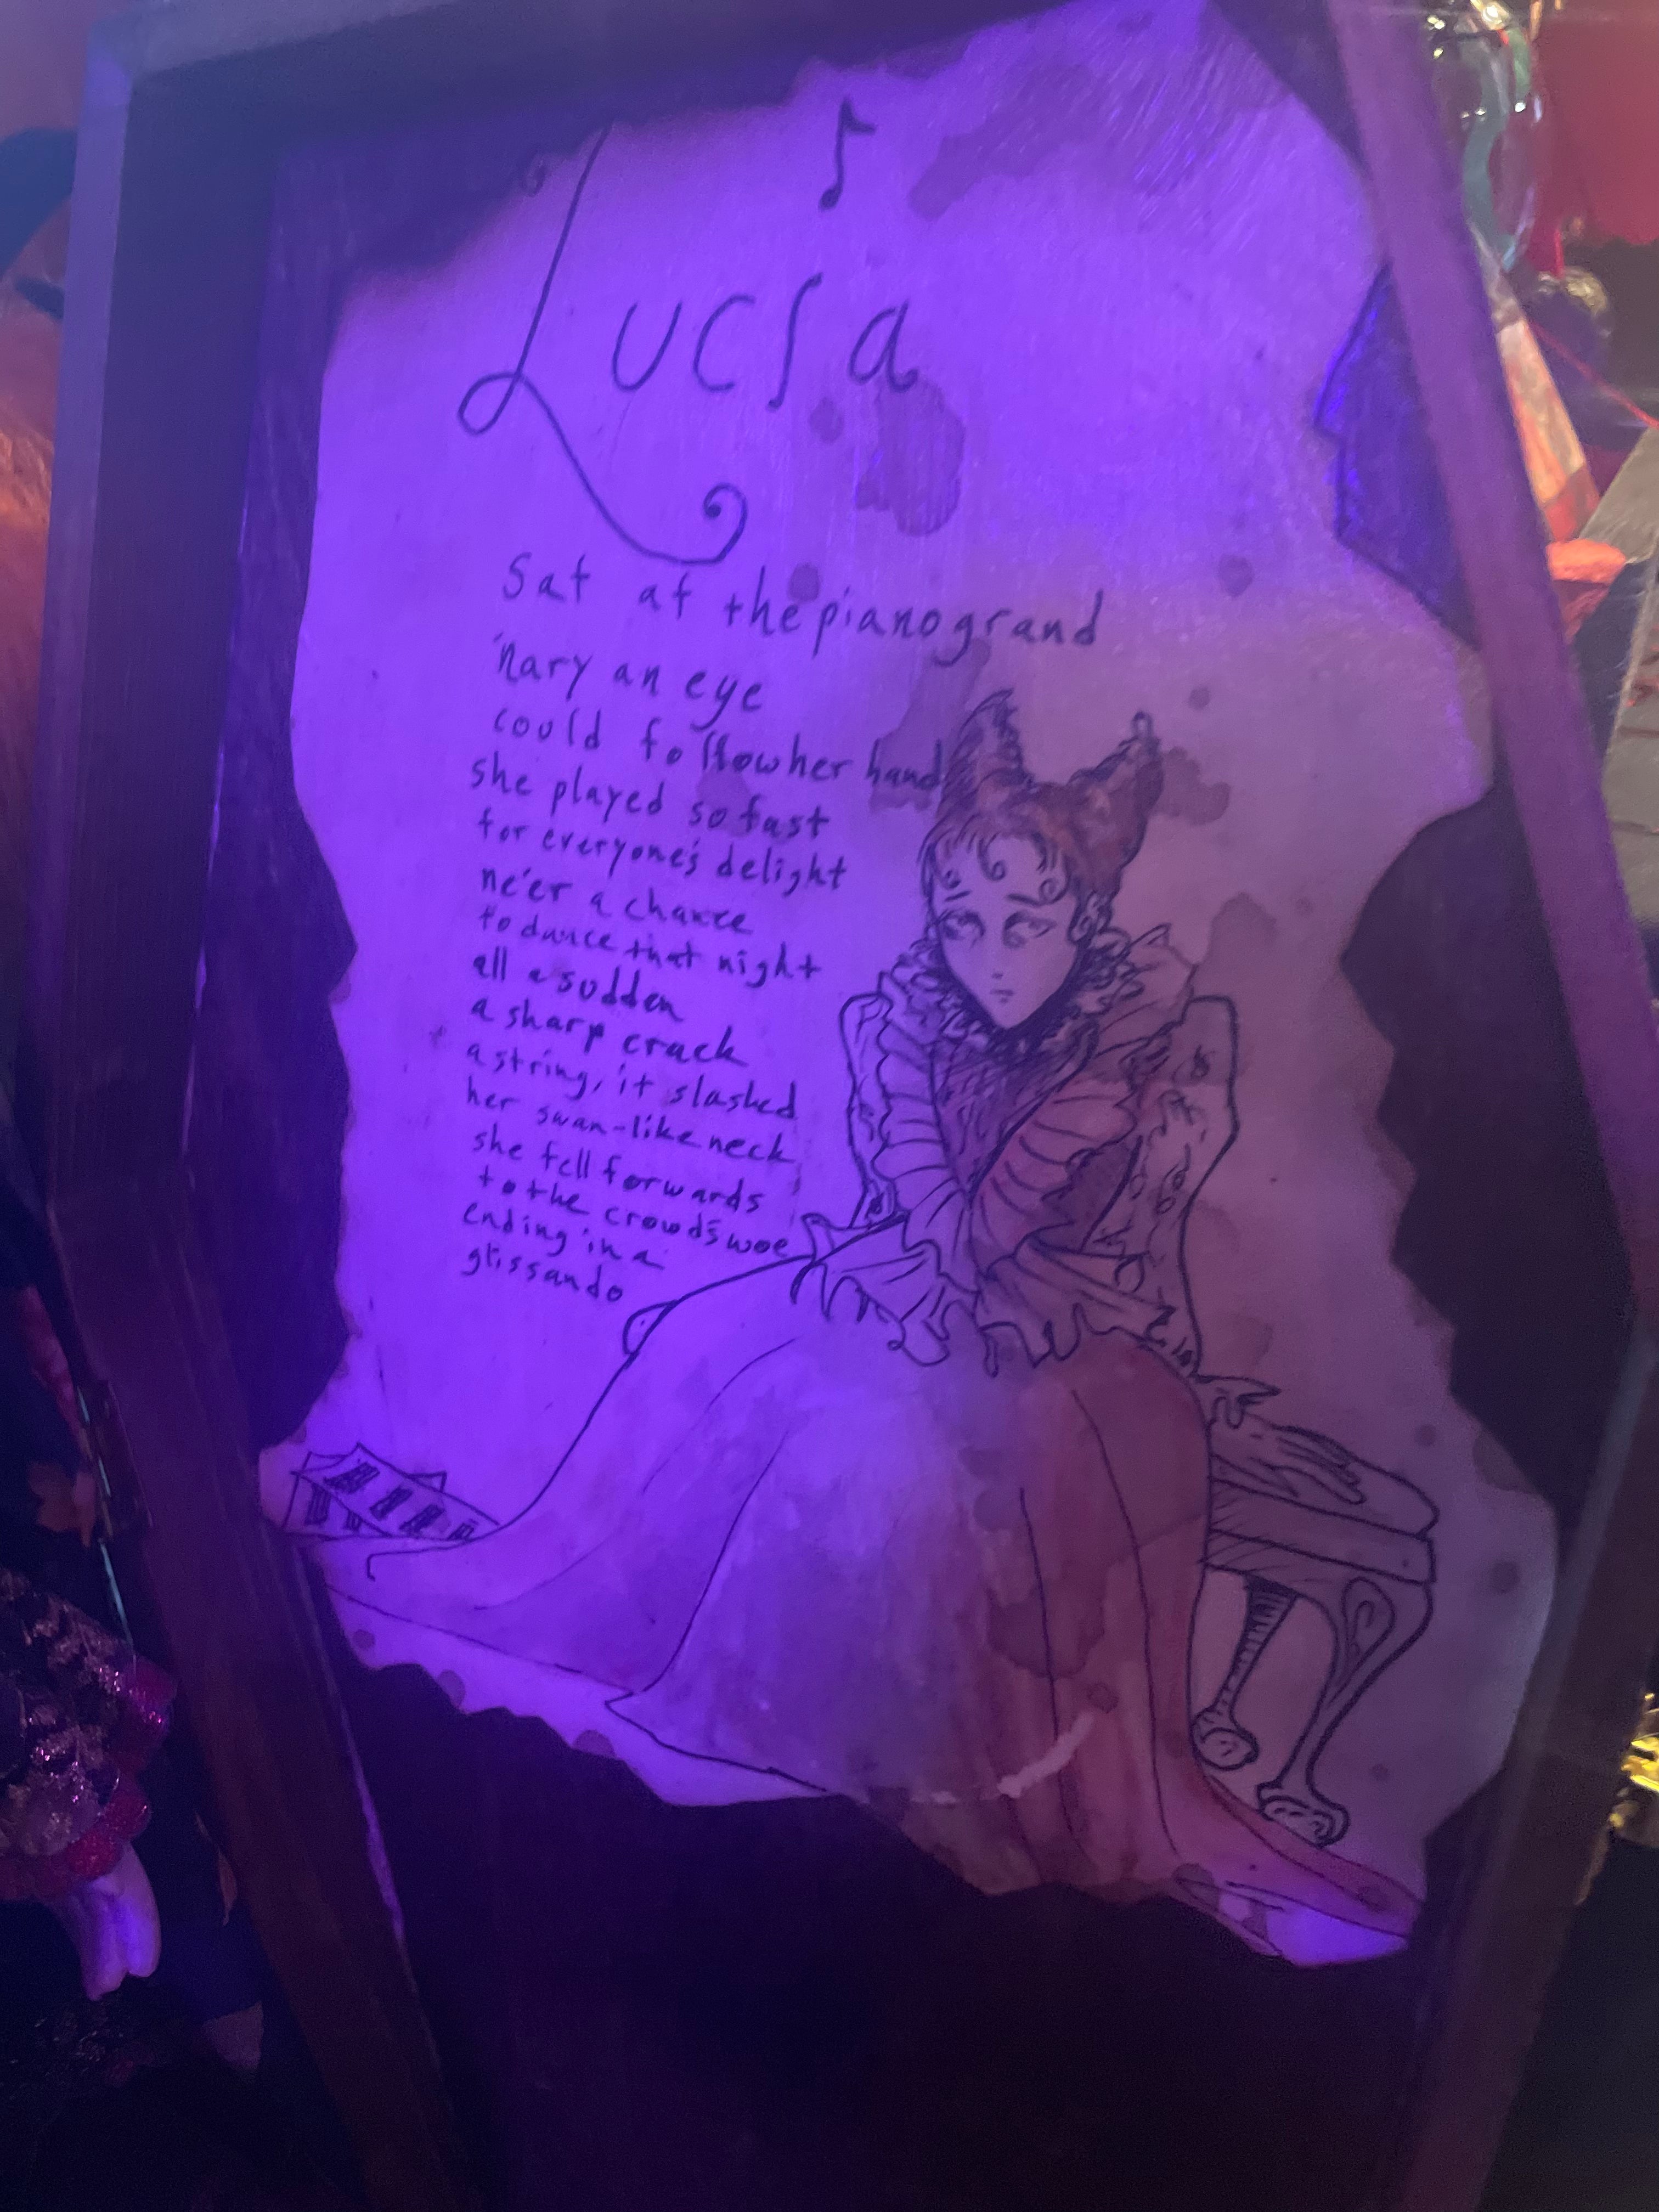 Lucia
sat at the piano grand
'nary an eye
could follow her hand
she played so fast
for everyone's delight
ne'er a chance
to dance that night
all a sudden
a sharp crack
a string, it slashed
her swan-like neck
she fell forwards
to the crowd's woe
ending in a
glissando